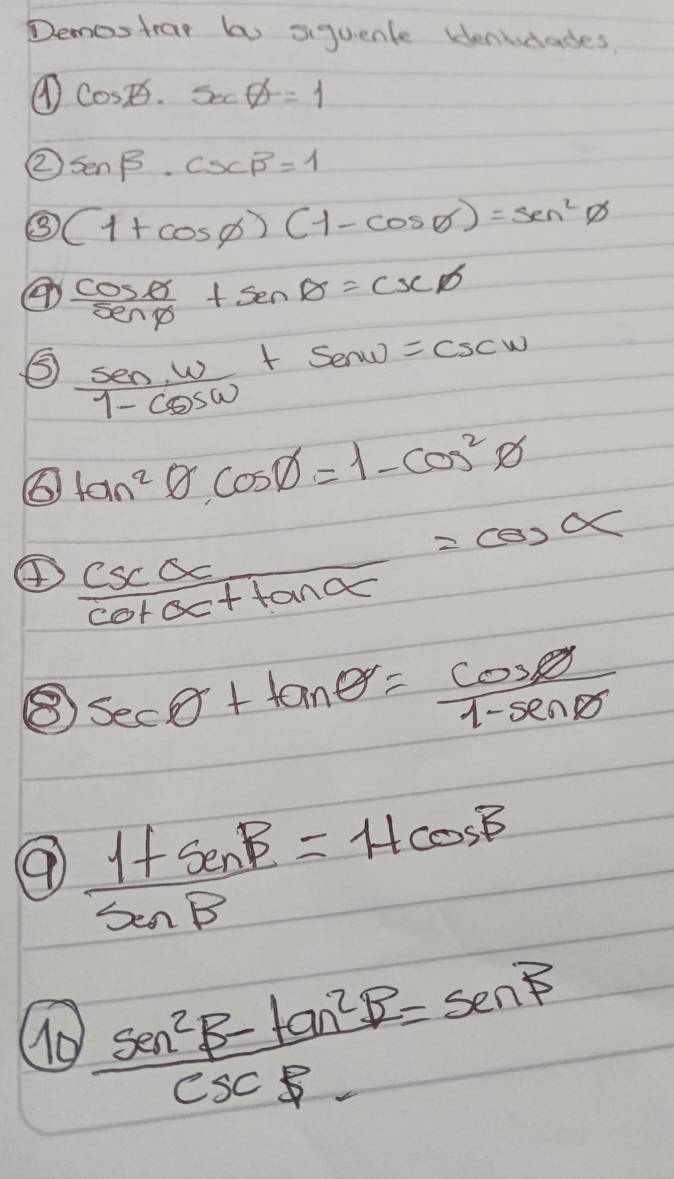 Demostrar las siguiente Identidades.
① Cosø. Sec ø = 1
② sen β . cscβ = 1
③ (1 + cosø) (1 - cosø) = sen² ø
④ cosø/senø + senø = cscø
⑤ sen w/1 - cosw + Senw = cscw
⑥ tan² ø . cosø = 1 - cos² ø
⑦ csc α/cot α + tan α = cos α
⑧ secø + tanø = cosø/1 - senø
⑨ 1 + sen β/sen β = 1 + cos β
⑩ sen² β - tan² β/csc β = sen β